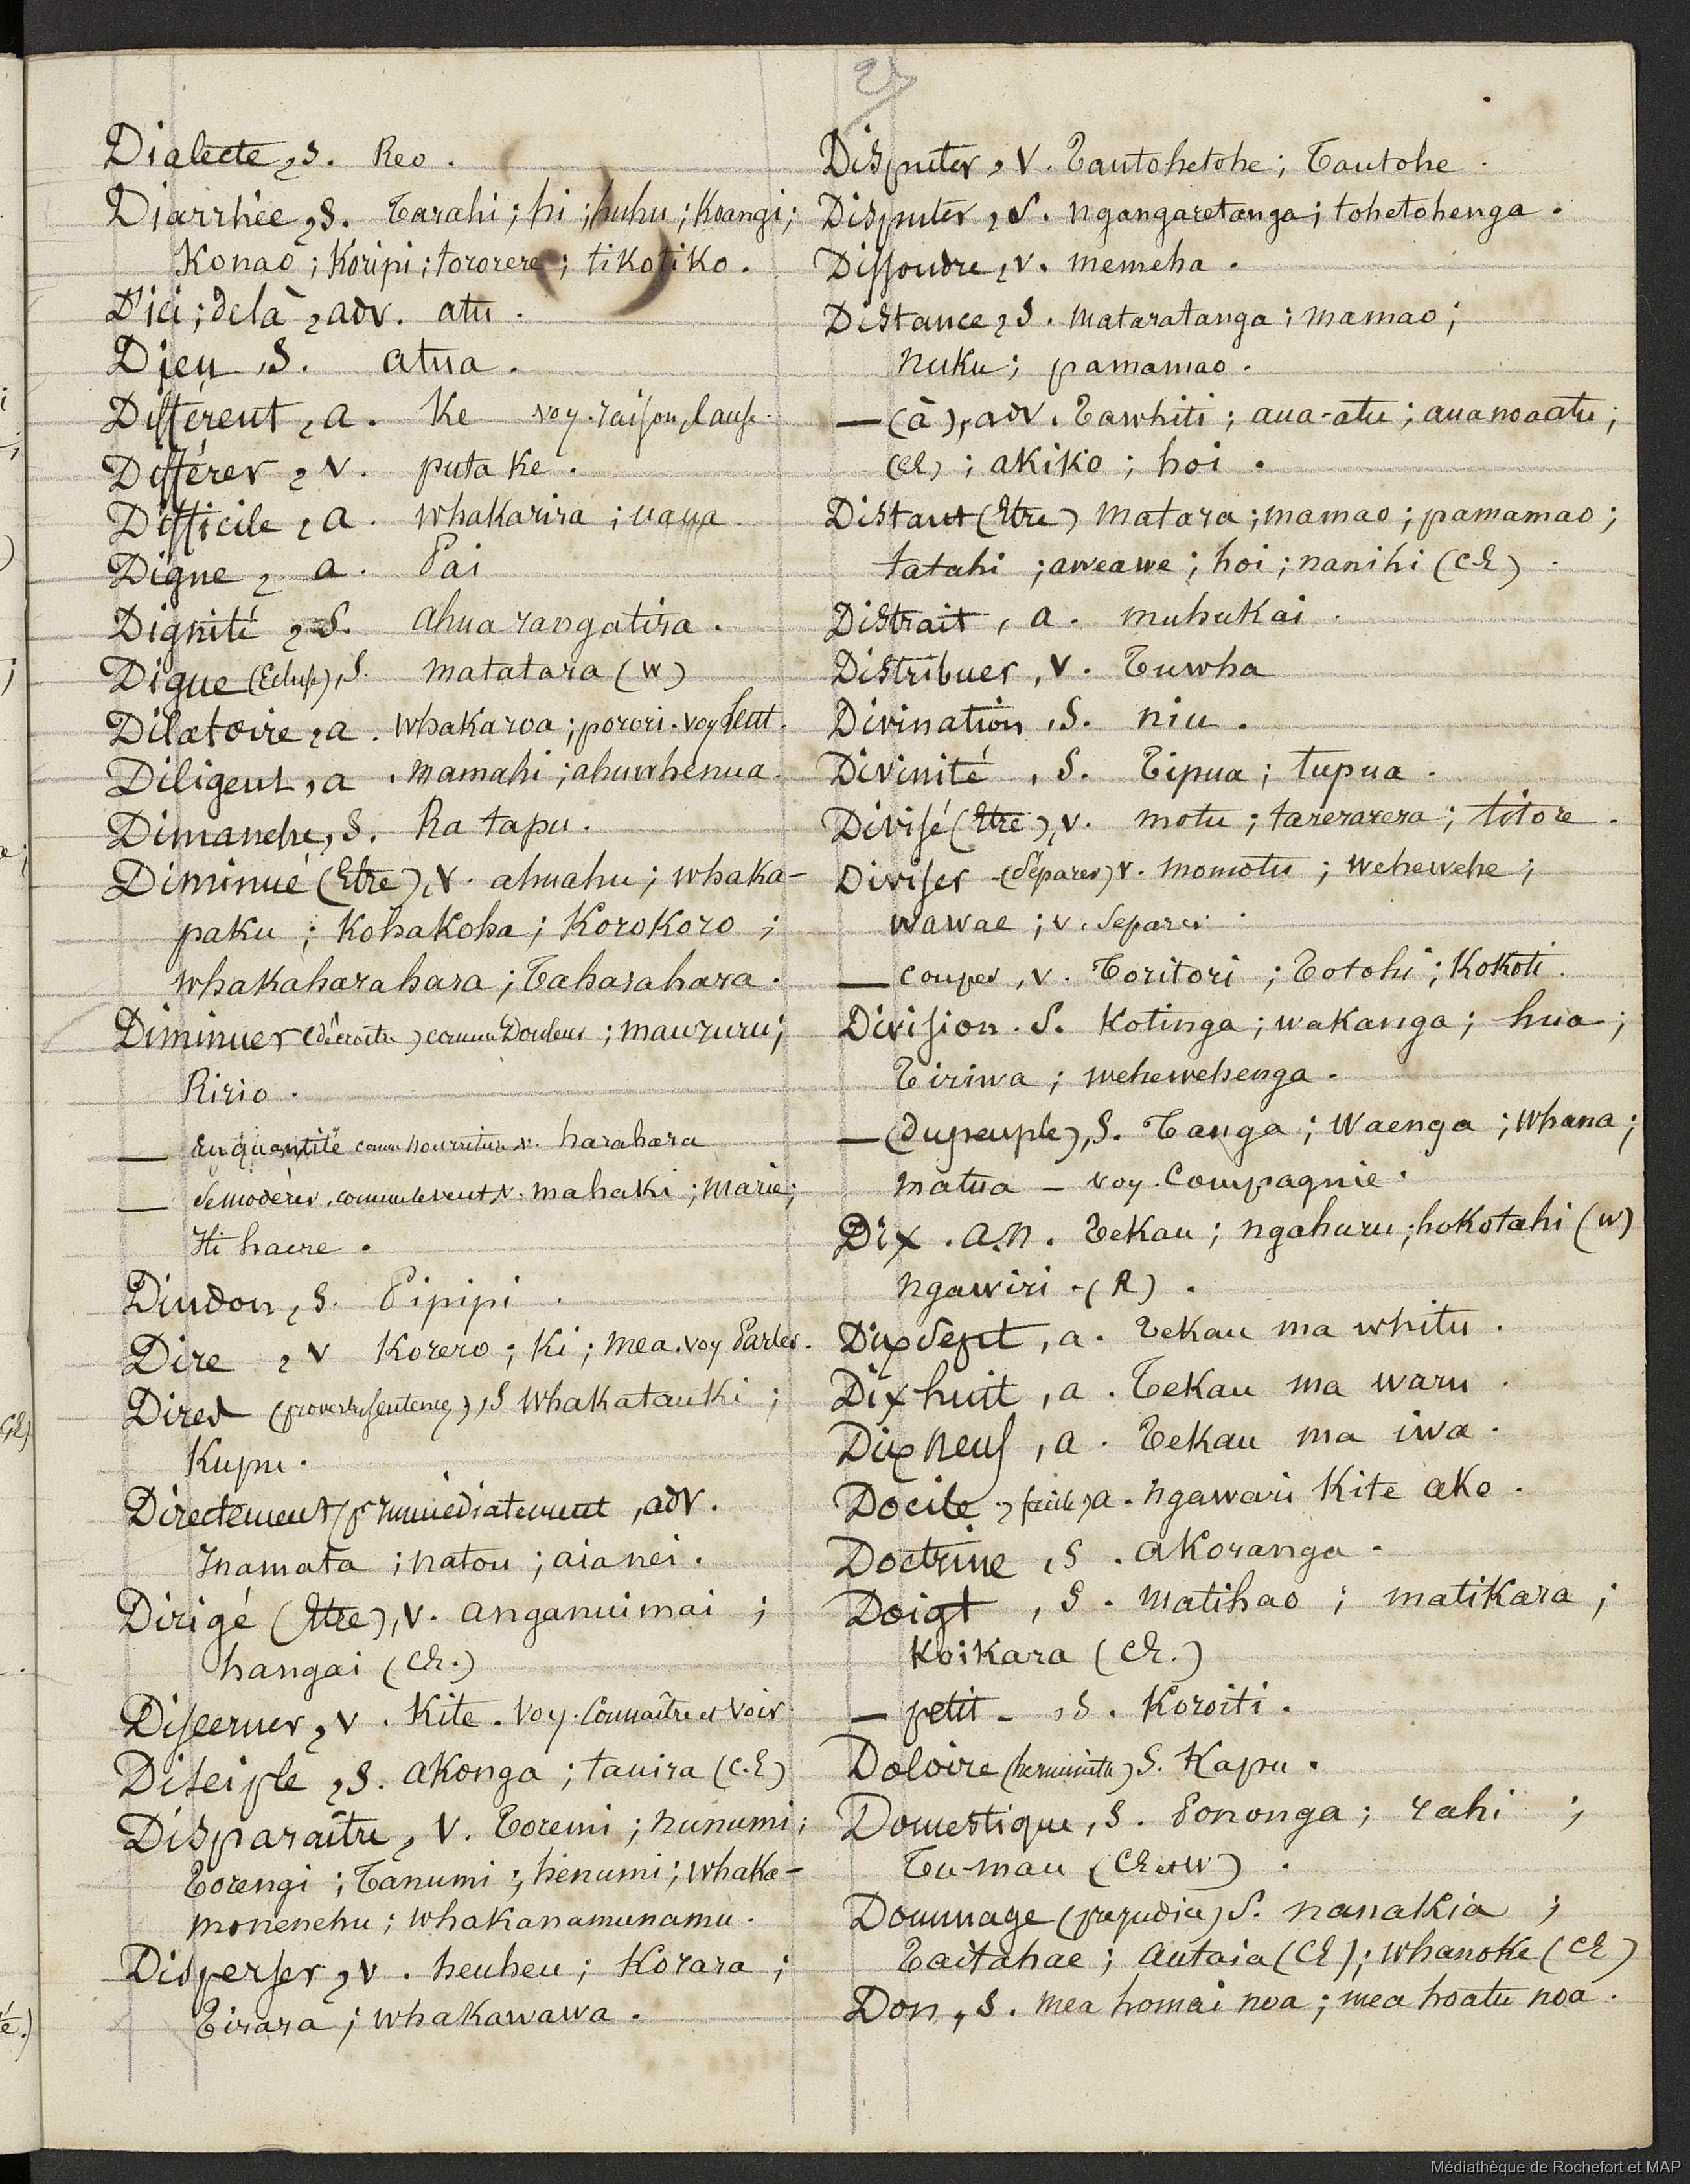 27
Dialecte, s. Reo.
Diarrhée, s. Tarahi; hi; huhu; Koangi;
Konao; Koripi; tororere; tikotiko.
D'ici; delà, adv. atu.
Dieu, s. atua.
Différent, a. Ke voy. raison, cause.
Différer, v. puta ke.
Difficile, a. whakarira; uaua
Digne, a. Pai
Dignité, s. ahua rangatira.
Digue (Ecluse), s. matatara (w)
Dilatoire, a. whakaroa; porori. voy Lent.
Diligent, a. mamahi; ahuwhenua.
Dimanche, s. Ra tapu.
Diminué (Etre), v. ahuahu; whaka-
paku; Kohakoha; Korokoro;
whakaharahara; Taharahara.
Diminuer (décroitre) comme Douleur; maururu;
Ririo.
— En quantité comme nourriture v. harahara
— Se modérer, comme le vent, v. mahaki; marie;
Hi haere.
Dindon, s. Pipipi.
Dire, v Korero; Ki; mea. voy Parler.
Dires (proverbe, sentence), s whakatauki;
Kupu.
Directement, immédiatement, adv.
Inamata; natou; aianei.
Dirigé (Etre), v. anganuimai;
hangai (Ch.)
Discerner, v. Kite. Voy. Connaître et Voir.
Disciple, s. akonga; tauira (Ch)
Disparaître, v. Toremi; nunumi;
Torengi; Tanumi; henumi; whaka-
monenehu; whakanamunamu.
Disperser, v. heuheu; Korara;
Tirara; whakawawa.
Disputer, v. Tautohetohe; Tautohe.
Disputer, s. ngangaretanga; tohetohenga.
Dissoudre, v. memeha.
Distance, s. mataratanga; mamao;
nuku; pamamao.
— (à), adv. Tawhiti; aua-atu; auanoaatu;
(Ch); akiko; hoi.
Distant (Etre) matara; mamao; pamamao;
tatahi; aweawe; hoi; nanihi (Ch).
Distrait, a. muhukai.
Distribuer, v. Tuwha
Divination, s. niu.
Divinité, s. Tipua; tupua.
Divisé (Etre), v. motu; tarerarera; titore.
Diviser (Séparer) v. momotu; wehewehe;
wawae; v. Separer.
— couper, v. Toritori; Totohi; Kokoti.
Division. s. Kotinga; wakanga; hua;
Tiriwa; wehewehenga.
— (du peuple), s. Tanga; Waenga; whana;
matua - voy. Compagnie.
Dix. a.n. Tekau; ngahuru; hokotahi (w)
ngawiri (R).
Dix sept, a. Tekau ma whitu.
Dix huit, a. Tekau ma waru.
Dix neuf, a. Tekau ma iwa.
Docile, facile, a. ngawari Kite ako.
Doctrine, s. akoranga.
Doigt, s. matihao; matikara;
Koikara (Ch.)
— petit -, s. Koroiti.
Doloire (herminette) s. Kapu.
Domestique, s. Pononga; rahi;
Tu-mau (Ch et W).
Dommage (préjudice) s. nanakia;
Taitahae; autaia (Ch); whanoke (Ch)
Don, s. mea homai noa; mea hoatu noa.
Médiathèque de Rochefort et MAP